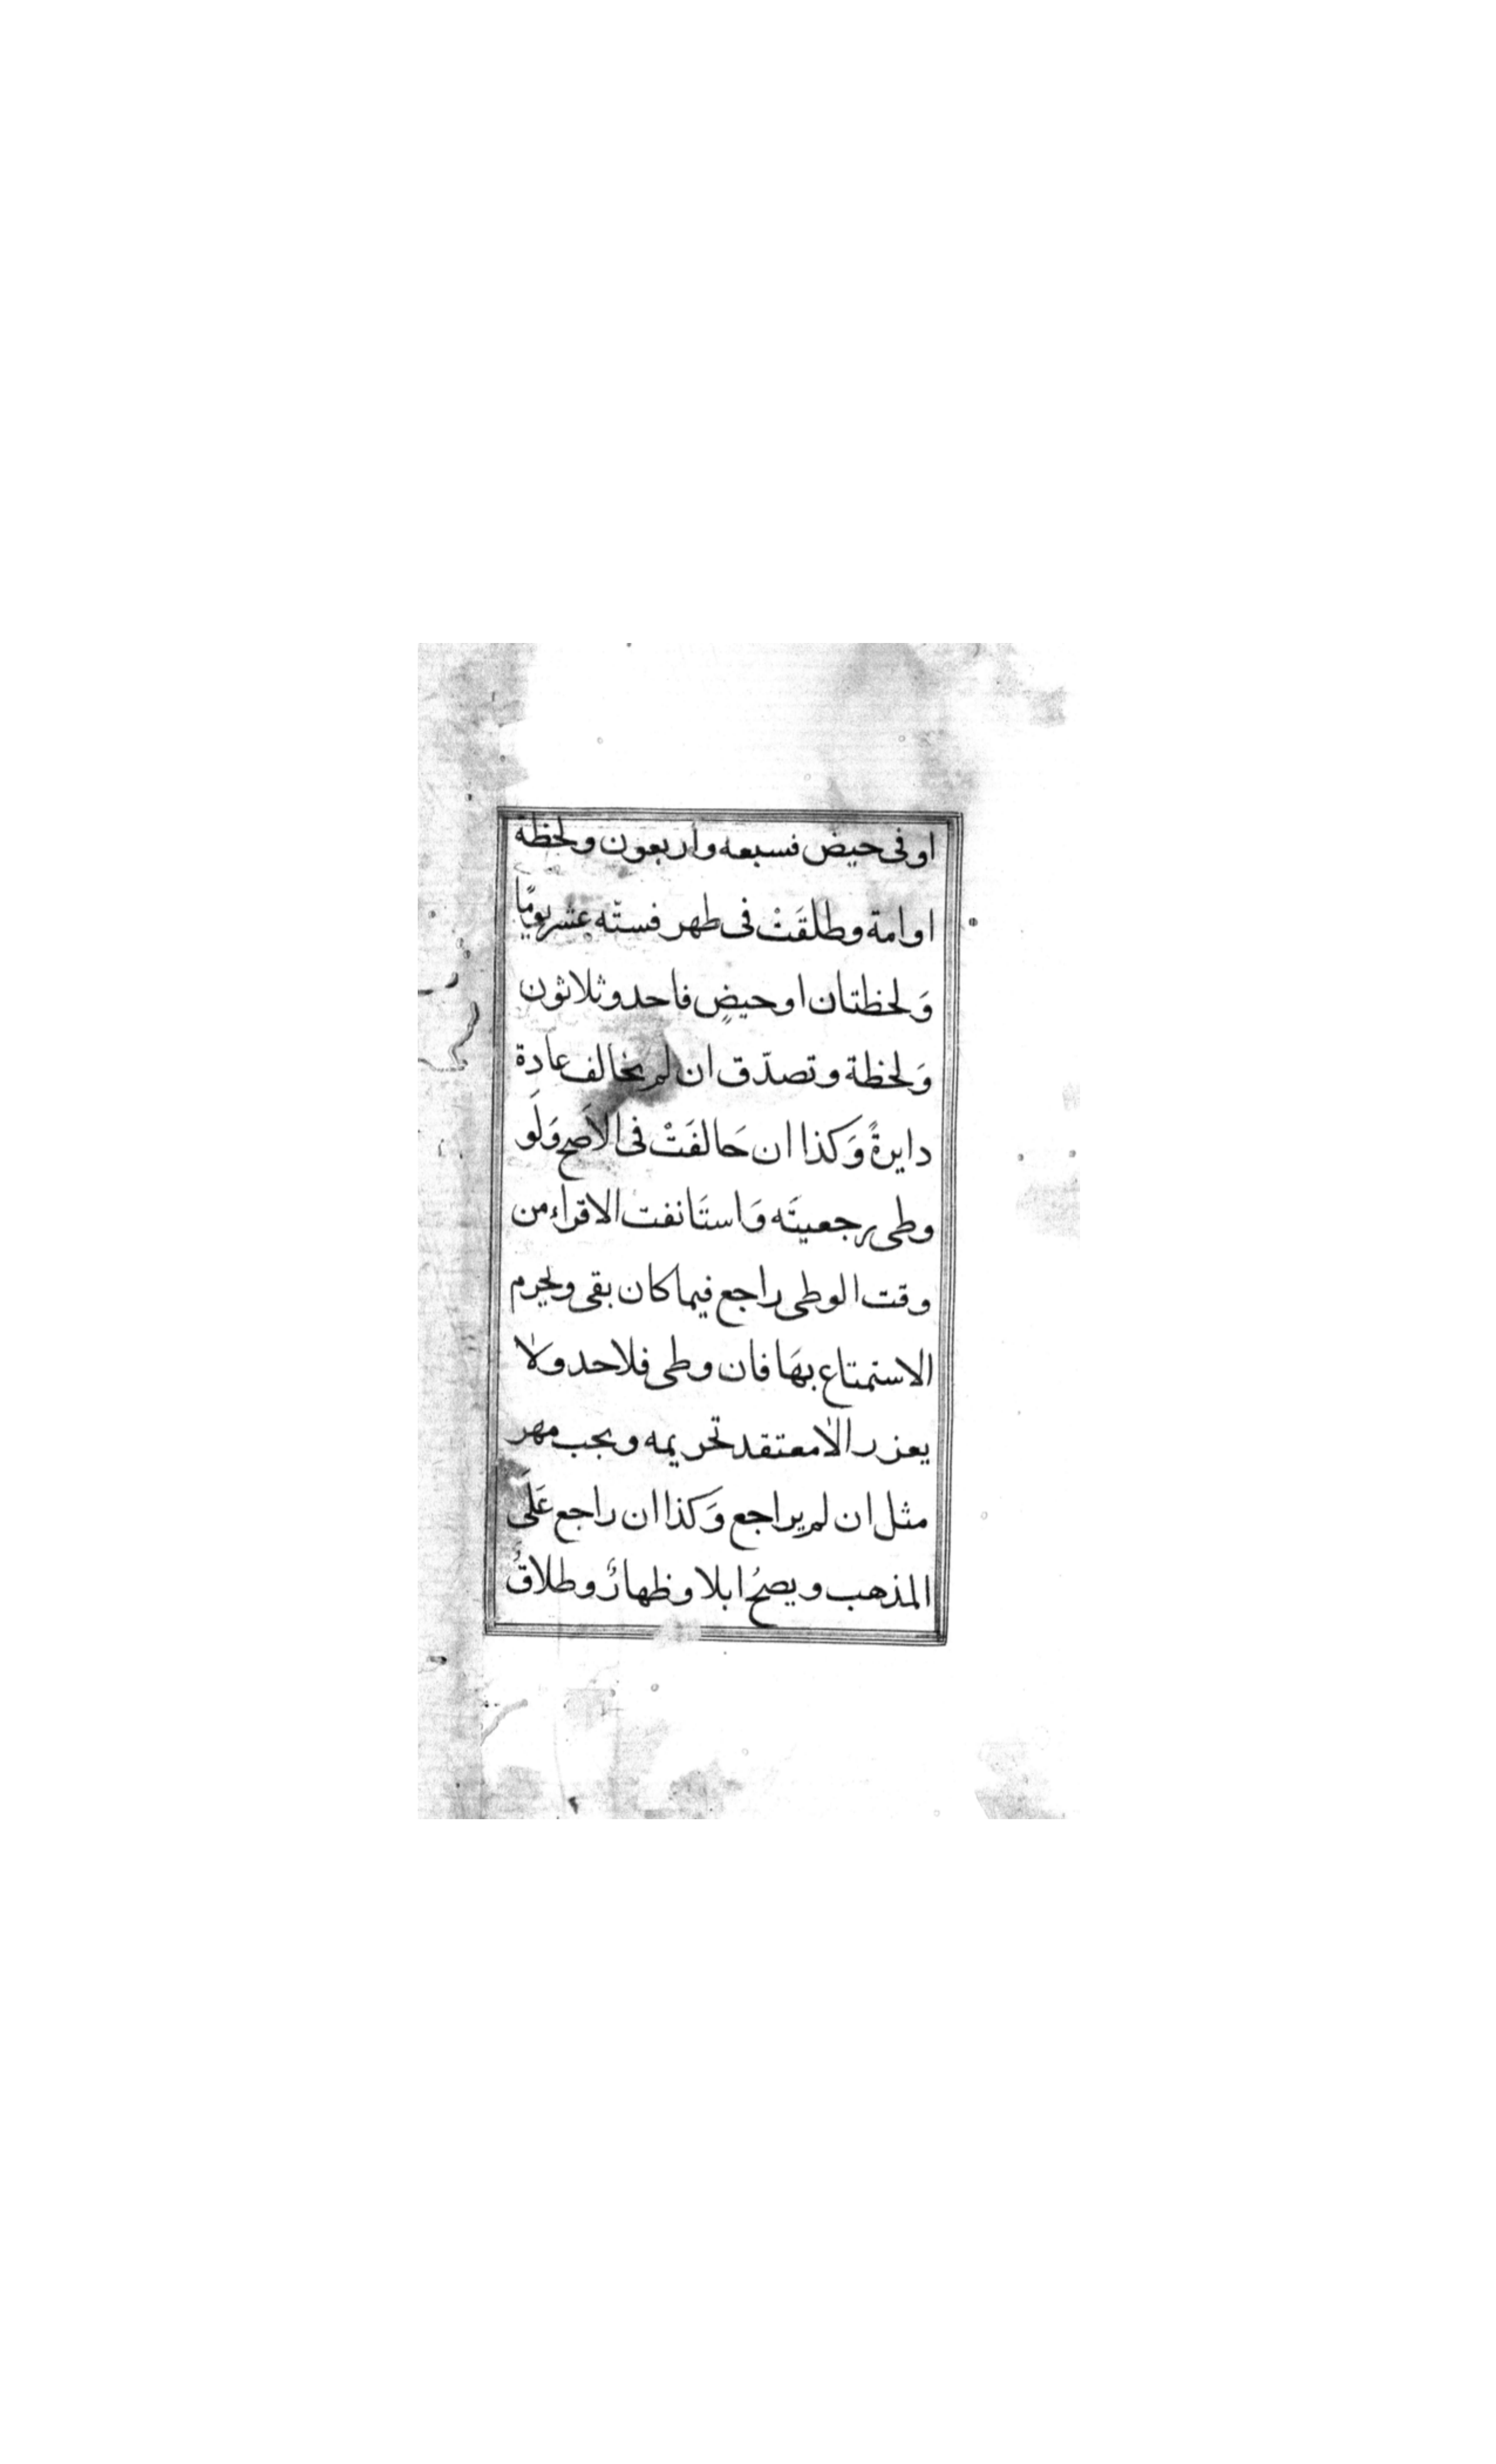 او فى حيض فسبعه وأربعون ولحظة
او امة وطلقَتْ فى طهر فستّه عشر يومًا
وَلحظتان او حيضٍ فاحد وثلاثون
وَلحظة وتصدّق ان لم تخالف عادة
دايرةً وَكذا ان خالفَتْ فى الاَصح وَلَو
وطى رجعيتَه وَاستَانفت الاقراء من
وقت الوطى راجع فيما كان بقى ويحرم
الاستمتاع بهَا فان وطى فلا حد ولا
يعزر الا معتقد تحريمه ويجب مهر
مثل ان لم يراجع وَكذا ان راجع عَلَى
المذهب ويصحُ ايلا وظهارٌ وطلاقٌ